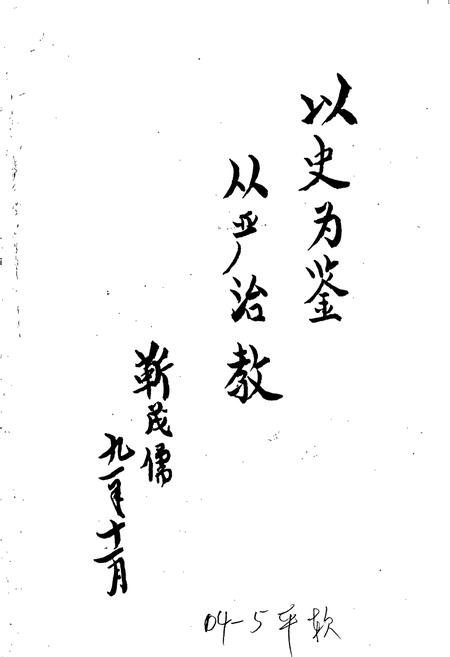 以史为鉴
从严治教
靳茂儒
九一年十一月
04-5 平软